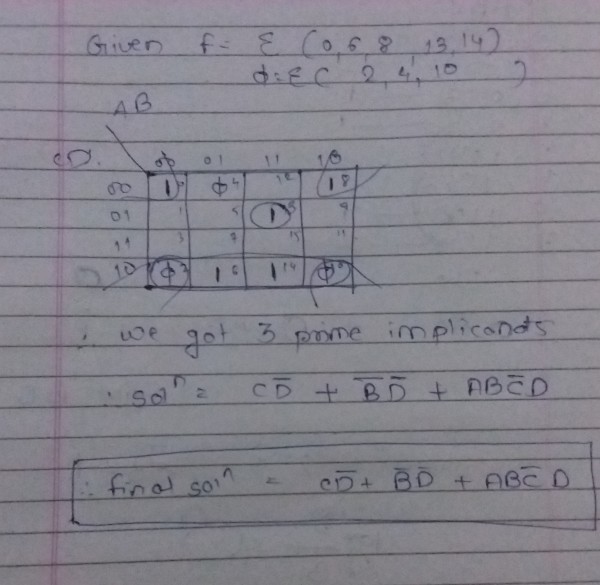 Given f = Σ (0, 6, 8, 13, 14)
ϕ = Σ ( 2, 4, 10 )
AB
CD.
00 01 11 10
00 1 0 ϕ 4 12 1 8
01 1 5 1 13 9
11 3 7 15 11
10 ϕ 2 1 6 1 14 ϕ 10
∴ we got 3 prime implicants
∴ solⁿ = CD̅ + B̅D̅ + ABC̅D
∴ final solⁿ = CD̅ + B̅D̅ + ABC̅D